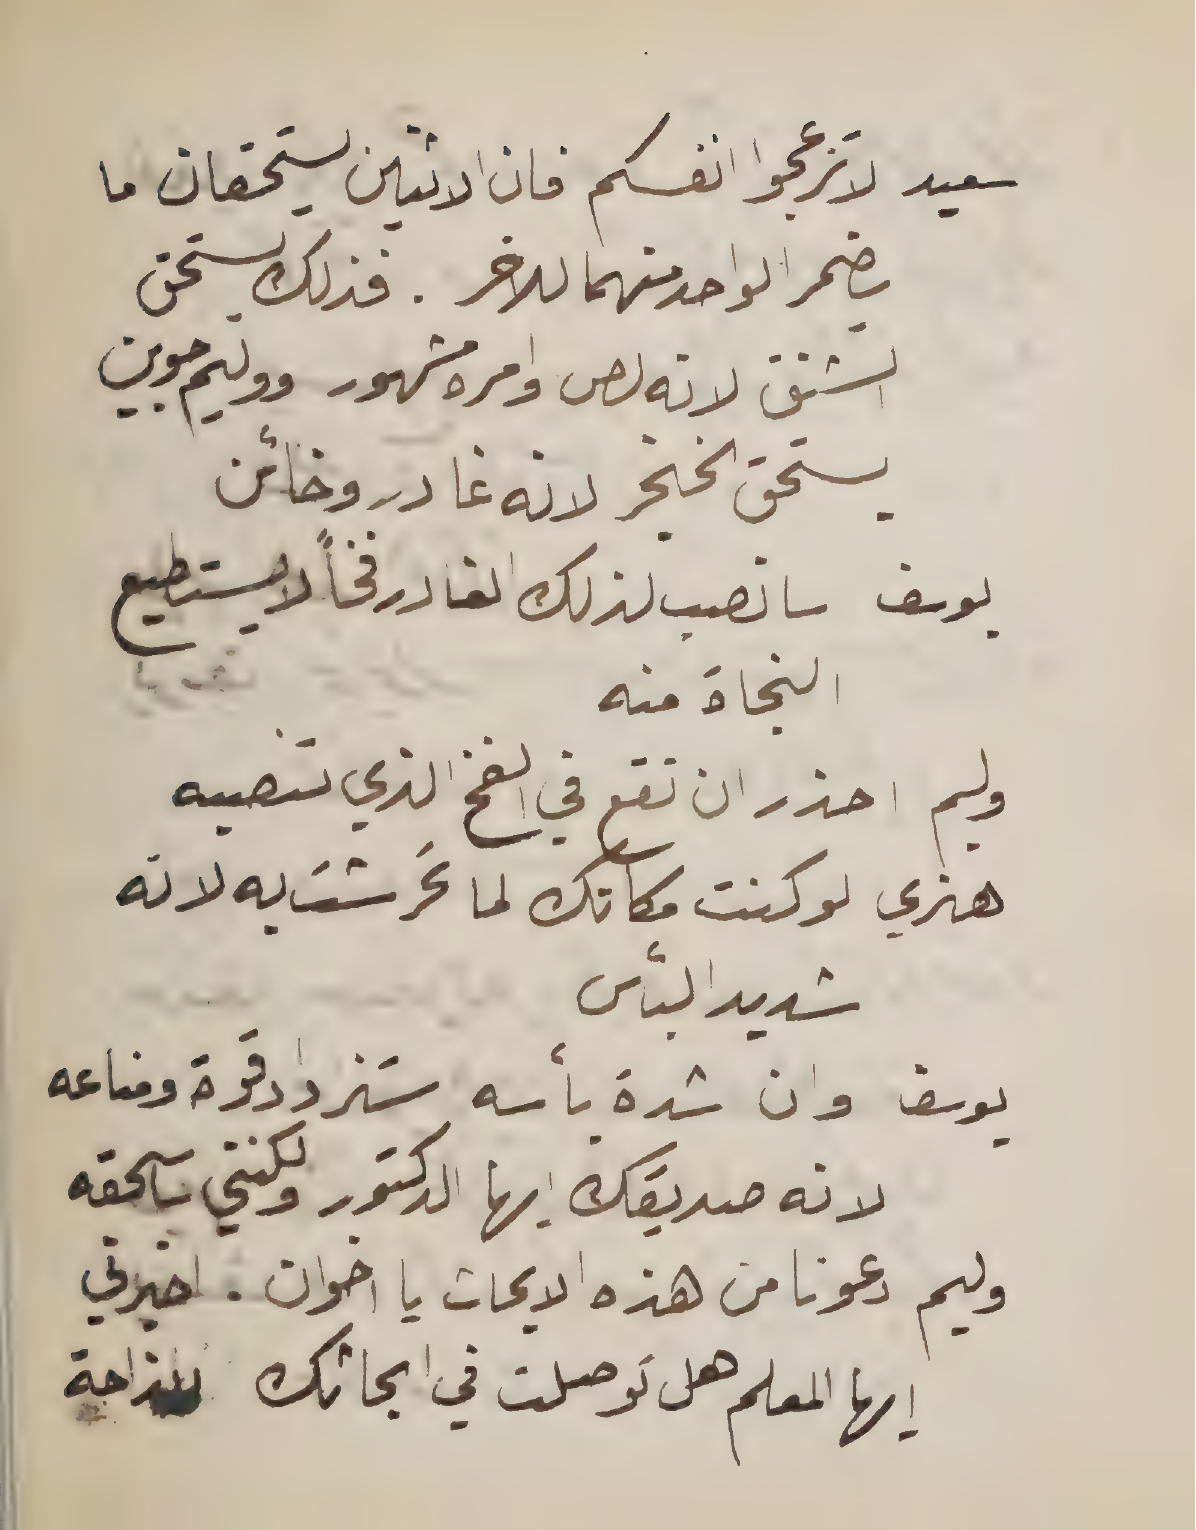 سعيد لا تزعجوا انفسكم فان الاثنين يستحقان ما
يضمر الواحد منهما للاخر . فذلك يستحق
الشنق لانه لص وامره مشهور ووليم جوين
يستحق الخنجر لانه غادر وخائن
يوسف سانصب لذلك الغادر فخاً لا يستطيع
النجاة منه
وليم احذر ان تقع في الفخ الذي تنصبه
هنري لو كنت مكانك لما تحرشت به لانه
شديد البأس
يوسف وان شدة بأسه ستزداد قوة ومناعه
لانه صديقك ايها الدكتور ولكنني ساسحقه
وليم دعونا من هذه الابحاث يا اخوان . اخبرني
ايها المعلم هل توصلت في ابحاثك